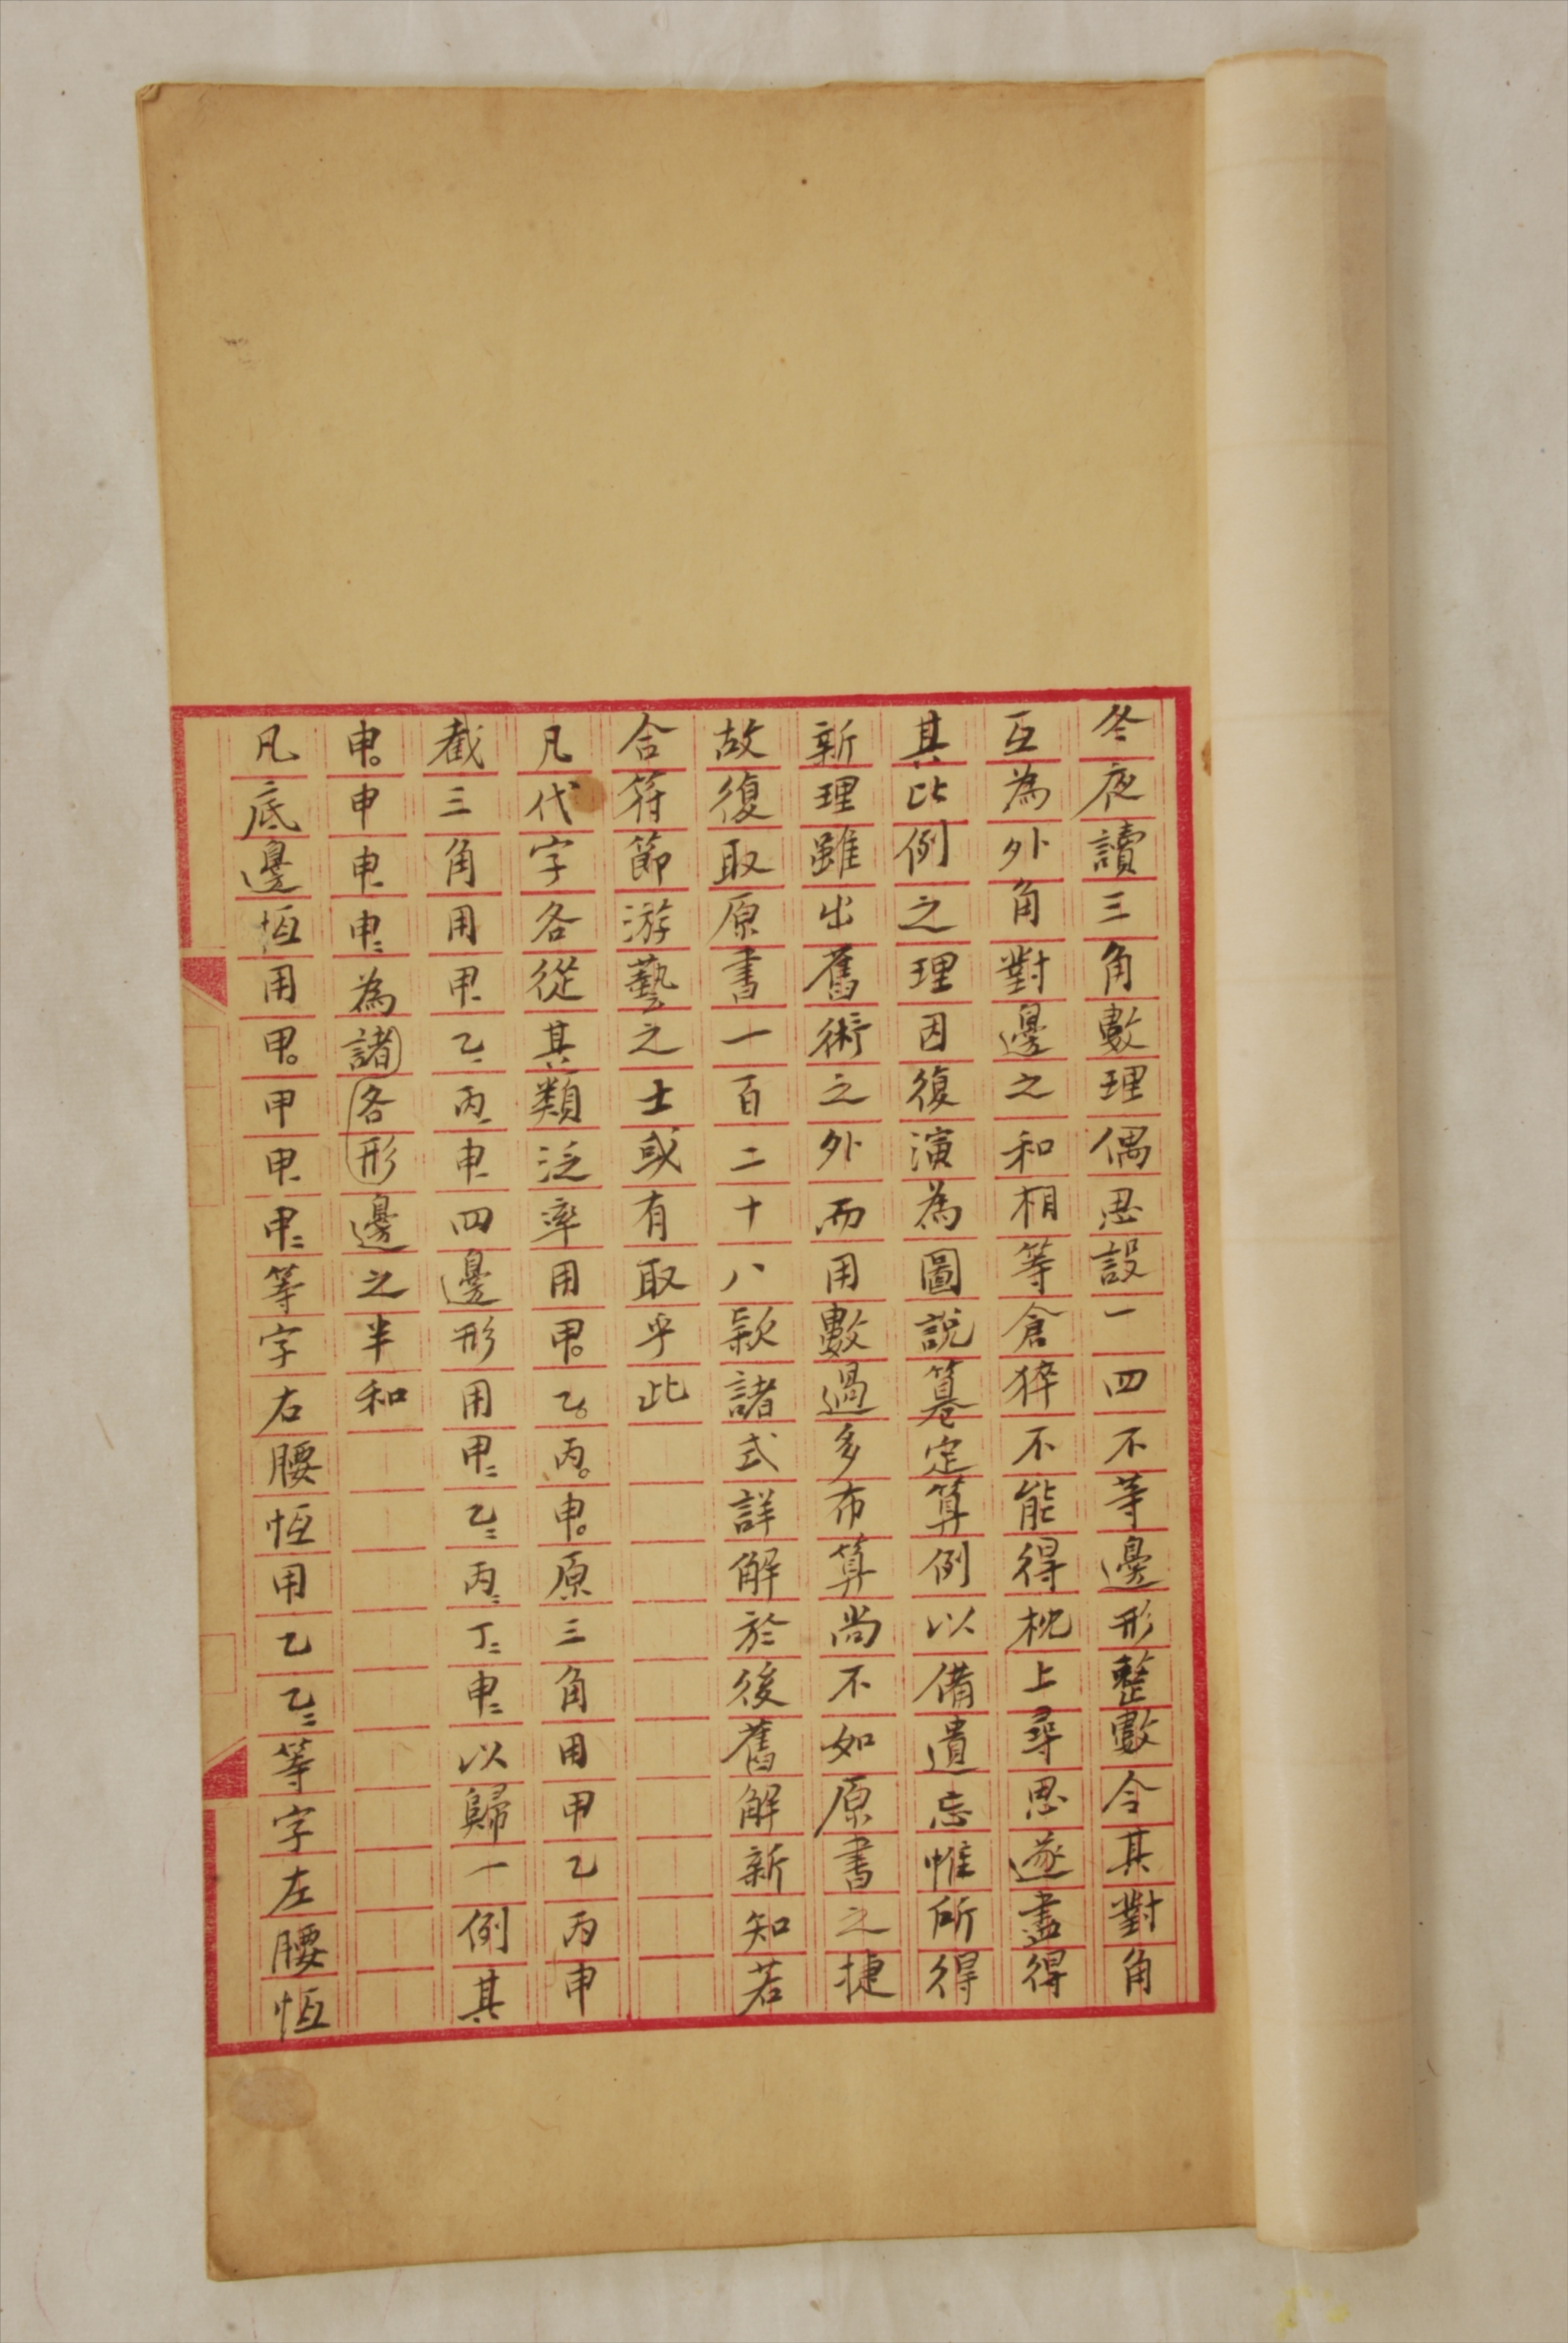 冬夜讀三角數理偶思設一四不等邊形整數令其對角
互為外角對邊之和相等倉猝不能得枕上尋思遂盡得
其比例之理因復演為圖說纂定算例以備遺忘惟所得
新理雖出舊術之外而用數過多布算尚不如原書之捷
故復取原書一百二十八款諸式詳解於後舊解新知若
合符節游藝之士或有取乎此
凡代字各從其類泛率用甲。乙。丙。申。原三角用甲乙丙申
截三角用甲-乙-丙-申-四邊形用甲=乙=丙=丁=申=以歸一例其
申。申申-申=為諸各形邊之半和
凡底邊恆用甲。甲甲-甲=等字右腰恆用乙乙=等字左腰恆